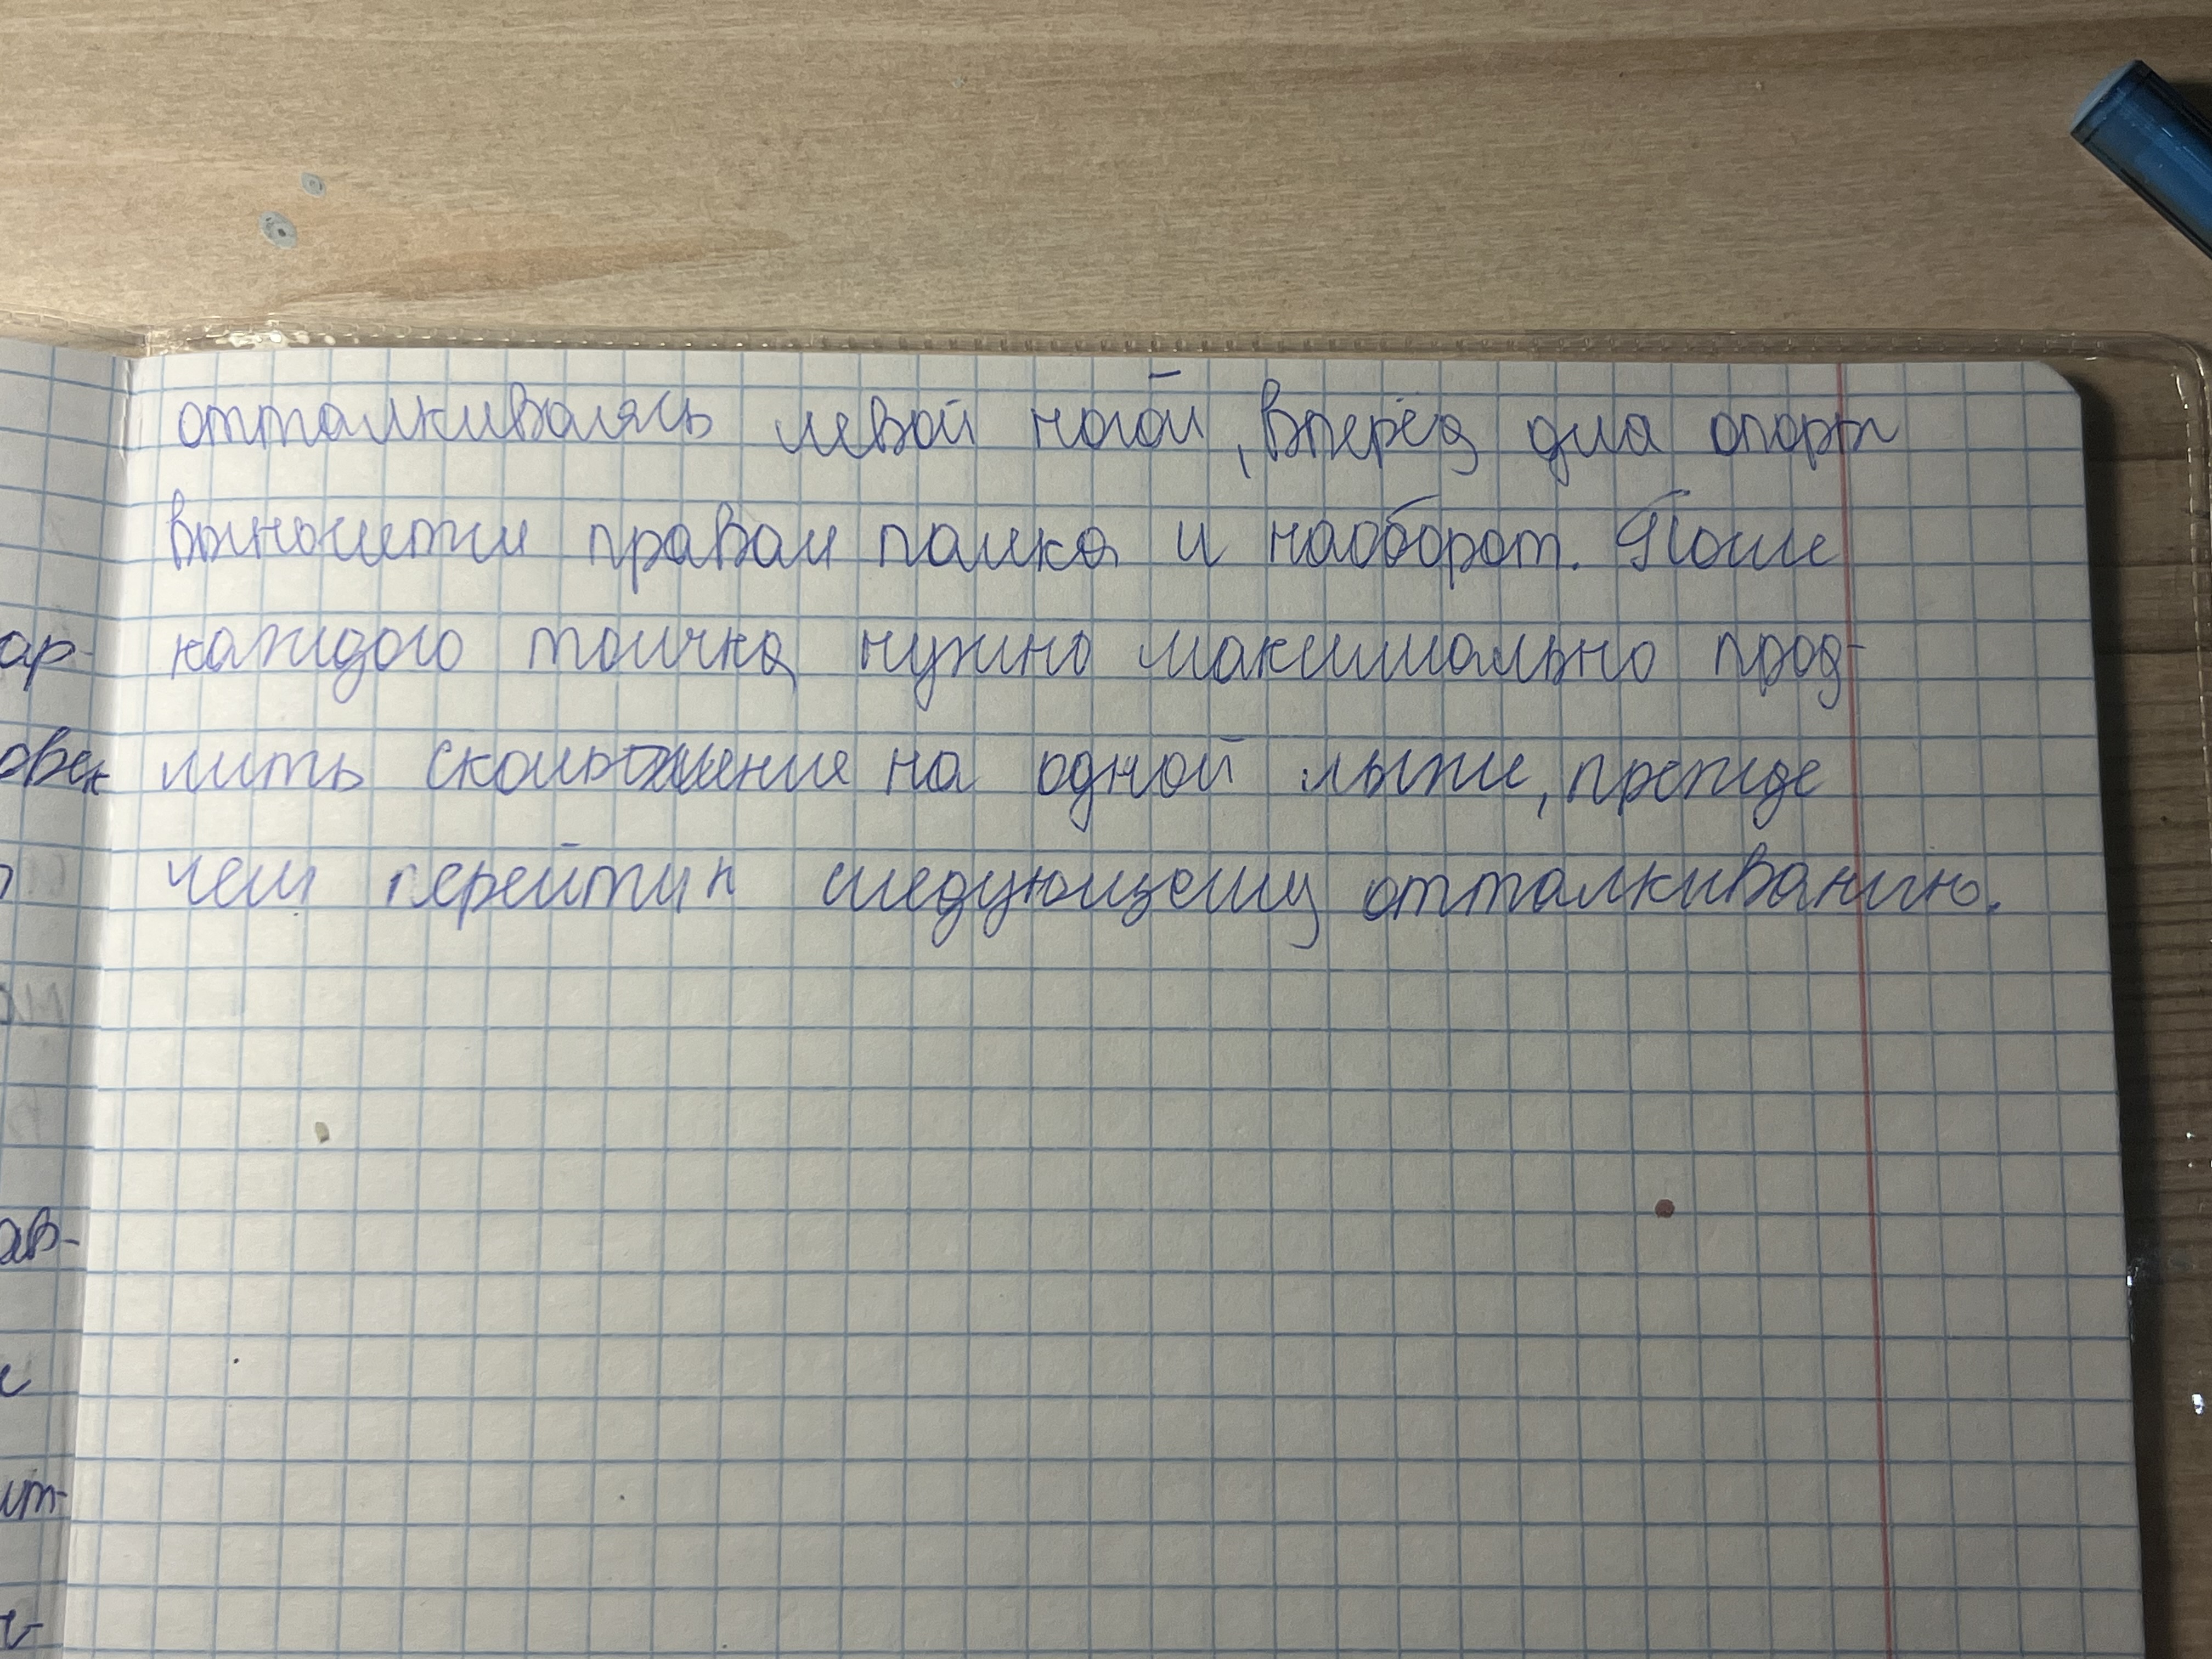 отталкиваясь левой ногой, вперёд для опоры
выносится правая палка и наоборот. После
каждого толчка нужно максимально прод-
лить скольжение на одной лыже, прежде
чем перейти к следующему отталкиванию.
ар-
овек
ав-
ит-